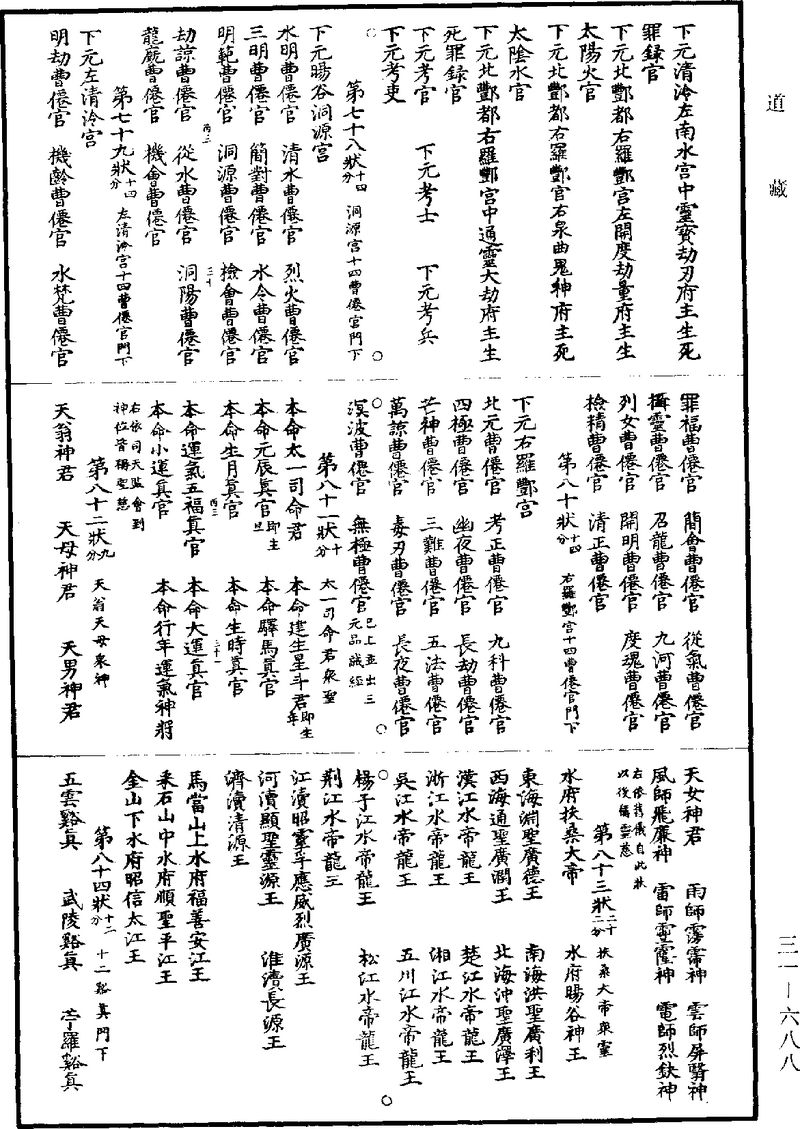 道藏
下元清泠左南水宫中靈寳劫刃府主生死
罪録官
下元北酆都右羅酆宫左開度劫量府主生
太陽火官
下元北酆都右羅酆官右泉曲鬼神府主死
太陰水官
下元北酆都右羅酆宫中通靈大劫府主生
死罪録官
下元考官　下元考士　下元考兵
下元考吏
第七十八狀十四分　洞源宫十四曹僊官門下
下元暘谷洞源宫
水明曹僊官　清水曹僊官　烈火曹僊官
三明曹僊官　簡對曹僊官　水令曹僊官
明範曹僊官　洞源曹僊官　檢會曹僊官
丙二　三十
劫諒曹僊官　從水曹僊官　洞陽曹僊官
龍廐曹僊官　機會曹僊官
第七十九狀十四分　左清泠宫十四曹僊官門下
下元左清泠宫
明劫曹僊官　機齡曹僊官　水梵曹僊官
罪福曹僊官　簡會曹僊官　從氣曹僊官
攝靈曹僊官　召龍曹僊官　九河曹僊官
列女曹僊官　開明曹僊官　度魂曹僊官
檢精曹僊官　清正曹僊官
第八十狀十四分　右羅酆宫十四曹僊官門下
下元右羅酆宫
北元曹僊官　考正曹僊官　九科曹僊官
四極曹僊官　幽夜曹僊官　長劫曹僊官
芒神曹僊官　三難曹僊官　五法曹僊官
萬諒曹僊官　毒刃曹僊官　長夜曹僊官
溟波曹僊官　無極曹僊官已上並出三元品誡經
第八十一狀十分　太一司命君衆聖
本命太一司命君　本命建生星斗君即生年
本命元辰真官即生旦　本命驛馬真官
本命生月真官　本命生時真官
丙三　三十一
本命運氣五福真官　本命大運真官
本命小運真官　本命行年運氣神將
右依司天監會到
神位皆稱聖慈
第八十二狀九分　天翁天母衆神
天翁神君　天母神君　天男神君
天女神君　雨師霶霈神　雲師屏翳神
風師飛廉神　雷師霊靇神　電師烈鈌神
右依舊儀自此狀
以後稱靈慈
第八十三狀二十二分　扶桑大帝衆靈
水府扶桑大帝　水府暘谷神王
東海淵聖廣德王　南海洪聖廣利王
西海通聖廣潤王　北海沖聖廣澤王
漢江水帝龍王　楚江水帝龍王
浙江水帝龍王　湘江水帝龍王
吳江水帝龍王　五川江水帝龍王
楊子江水帝龍王　松江水帝龍王
荆江水帝龍王
江瀆昭靈孚應威烈廣源王
河瀆顯聖靈源王　淮瀆長源王
濟瀆清源王
馬當山上水府福善安江王
采石山中水府順聖平江王
金山下水府昭信太江王
第八十四狀十二分　十二谿真門下
五雲谿真　武陵谿真　苧羅谿真
三一—六八八